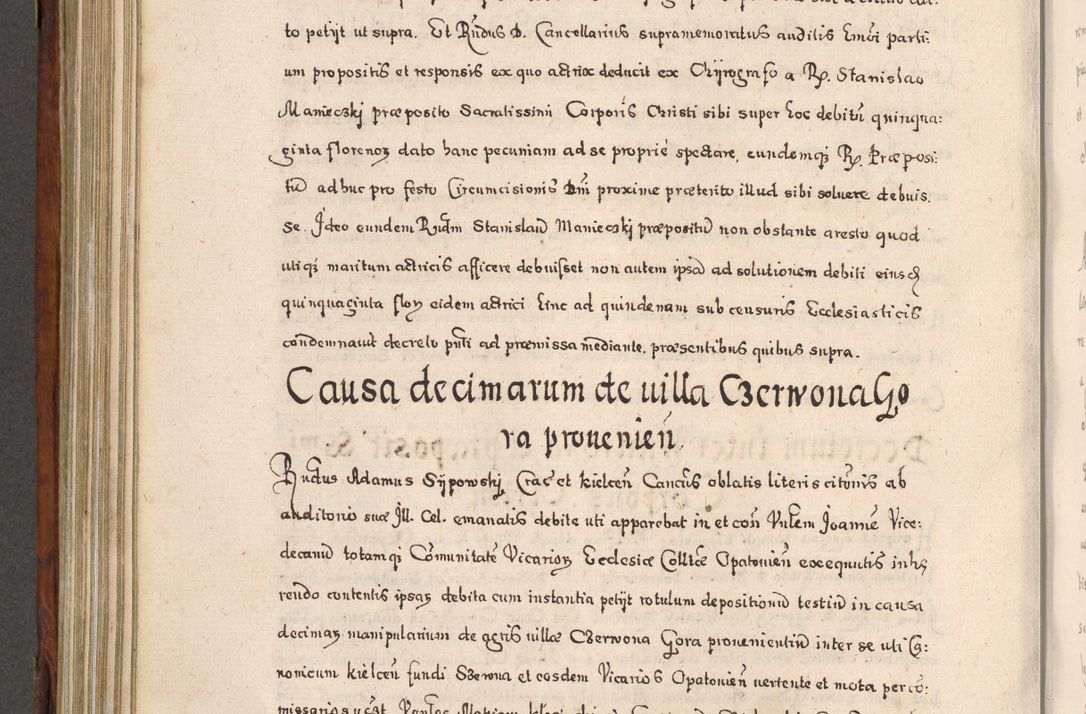 to petijt ut supra. Et Rñdus D. Cancellarius supramemoratus auditis hincoñ parti:
um propositis et responsis ex quo actrix deducit ex Chÿrografo a R. Stanislao
Manieczkj præposito Sacratissimi Corporis Christi sibi super hoc debitũ quinqua:
ginta florenoꝝ dato hanc pecuniam ad se proprié spectare, eundemqꝫ R. Præposi:
tũ adhuc pro festo Circumcisionis Dñi proxime præterito illud sibi soluere debuis.
se. Ideo eundem Rñdm Stanislaũ Manieczkj præpositũ non obstante aresto quod
utiqꝫ maritum actricis afficere debuisset non autem ipsã ad solutionem debiti eiusdẽ
quinquaginta floꝝ eidem actrici hinc ad quindenam sub censuris Ecclesiasticis
condemnauit decreto pñti ad præmissa mediante. præsentibus quibus supra.
Causa decimarum de uilla Czerwona Go
ra prouenień.
Rñdus Adamus Sÿpowskj, Crac̃ et kielceñ Canc̃us oblatis literis citõnis ab
auditorio suæ Ill. Cel. emanatis debite uti apparebat in et coñ Vñlem Joannẽ Vice:
decanũ totamqꝫ Cõmunitatẽ Vicarioꝝ Ecclesiæ Collt̃æ Opatouieñ exequutis inhę
rendo contentis ipsaꝝ debita cum instantia petijt rotulum depositionũ testiũ in causa
decimaꝝ manipularium de agris uillæ Czerwona Gora prouenientiũ inter se uti Ca:
nonicum kielceñ fundi Szewna et eosdem Vicarios Opatouieñ uertente et mota per cõ: